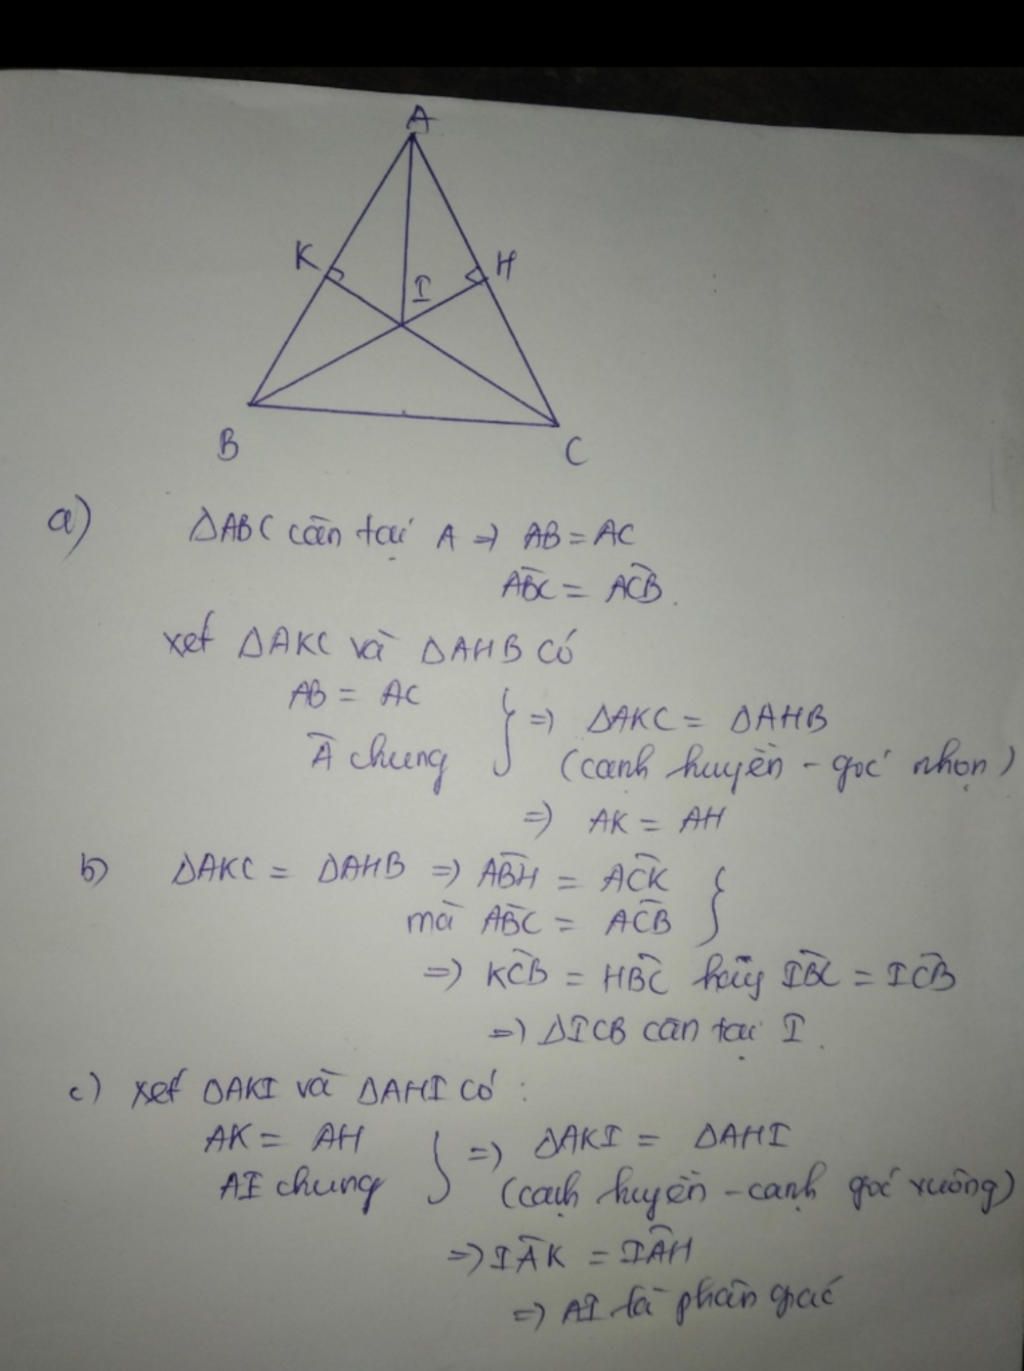 A
K
H
I
B
C
a) ΔABC cân tại A => AB = AC
ABC̑ = AC̑B.
xét ΔAKC và ΔAHB có
AB = AC } => ΔAKC = ΔAHB
Â chung (cạnh huyền - góc nhọn)
=> AK = AH
b) ΔAKC = ΔAHB => AB̂H = AĈK }
mà AB̂C = AĈB
=> KĈB = HB̂C hay IB̂C = IĈB
=> ΔICB cân tại I.
c) xét ΔAKI và ΔAHI có :
AK = AH } => ΔAKI = ΔAHI
AI chung (cạnh huyền - cạnh góc vuông)
=> IÂK = IÂH
=> AI là phân giác